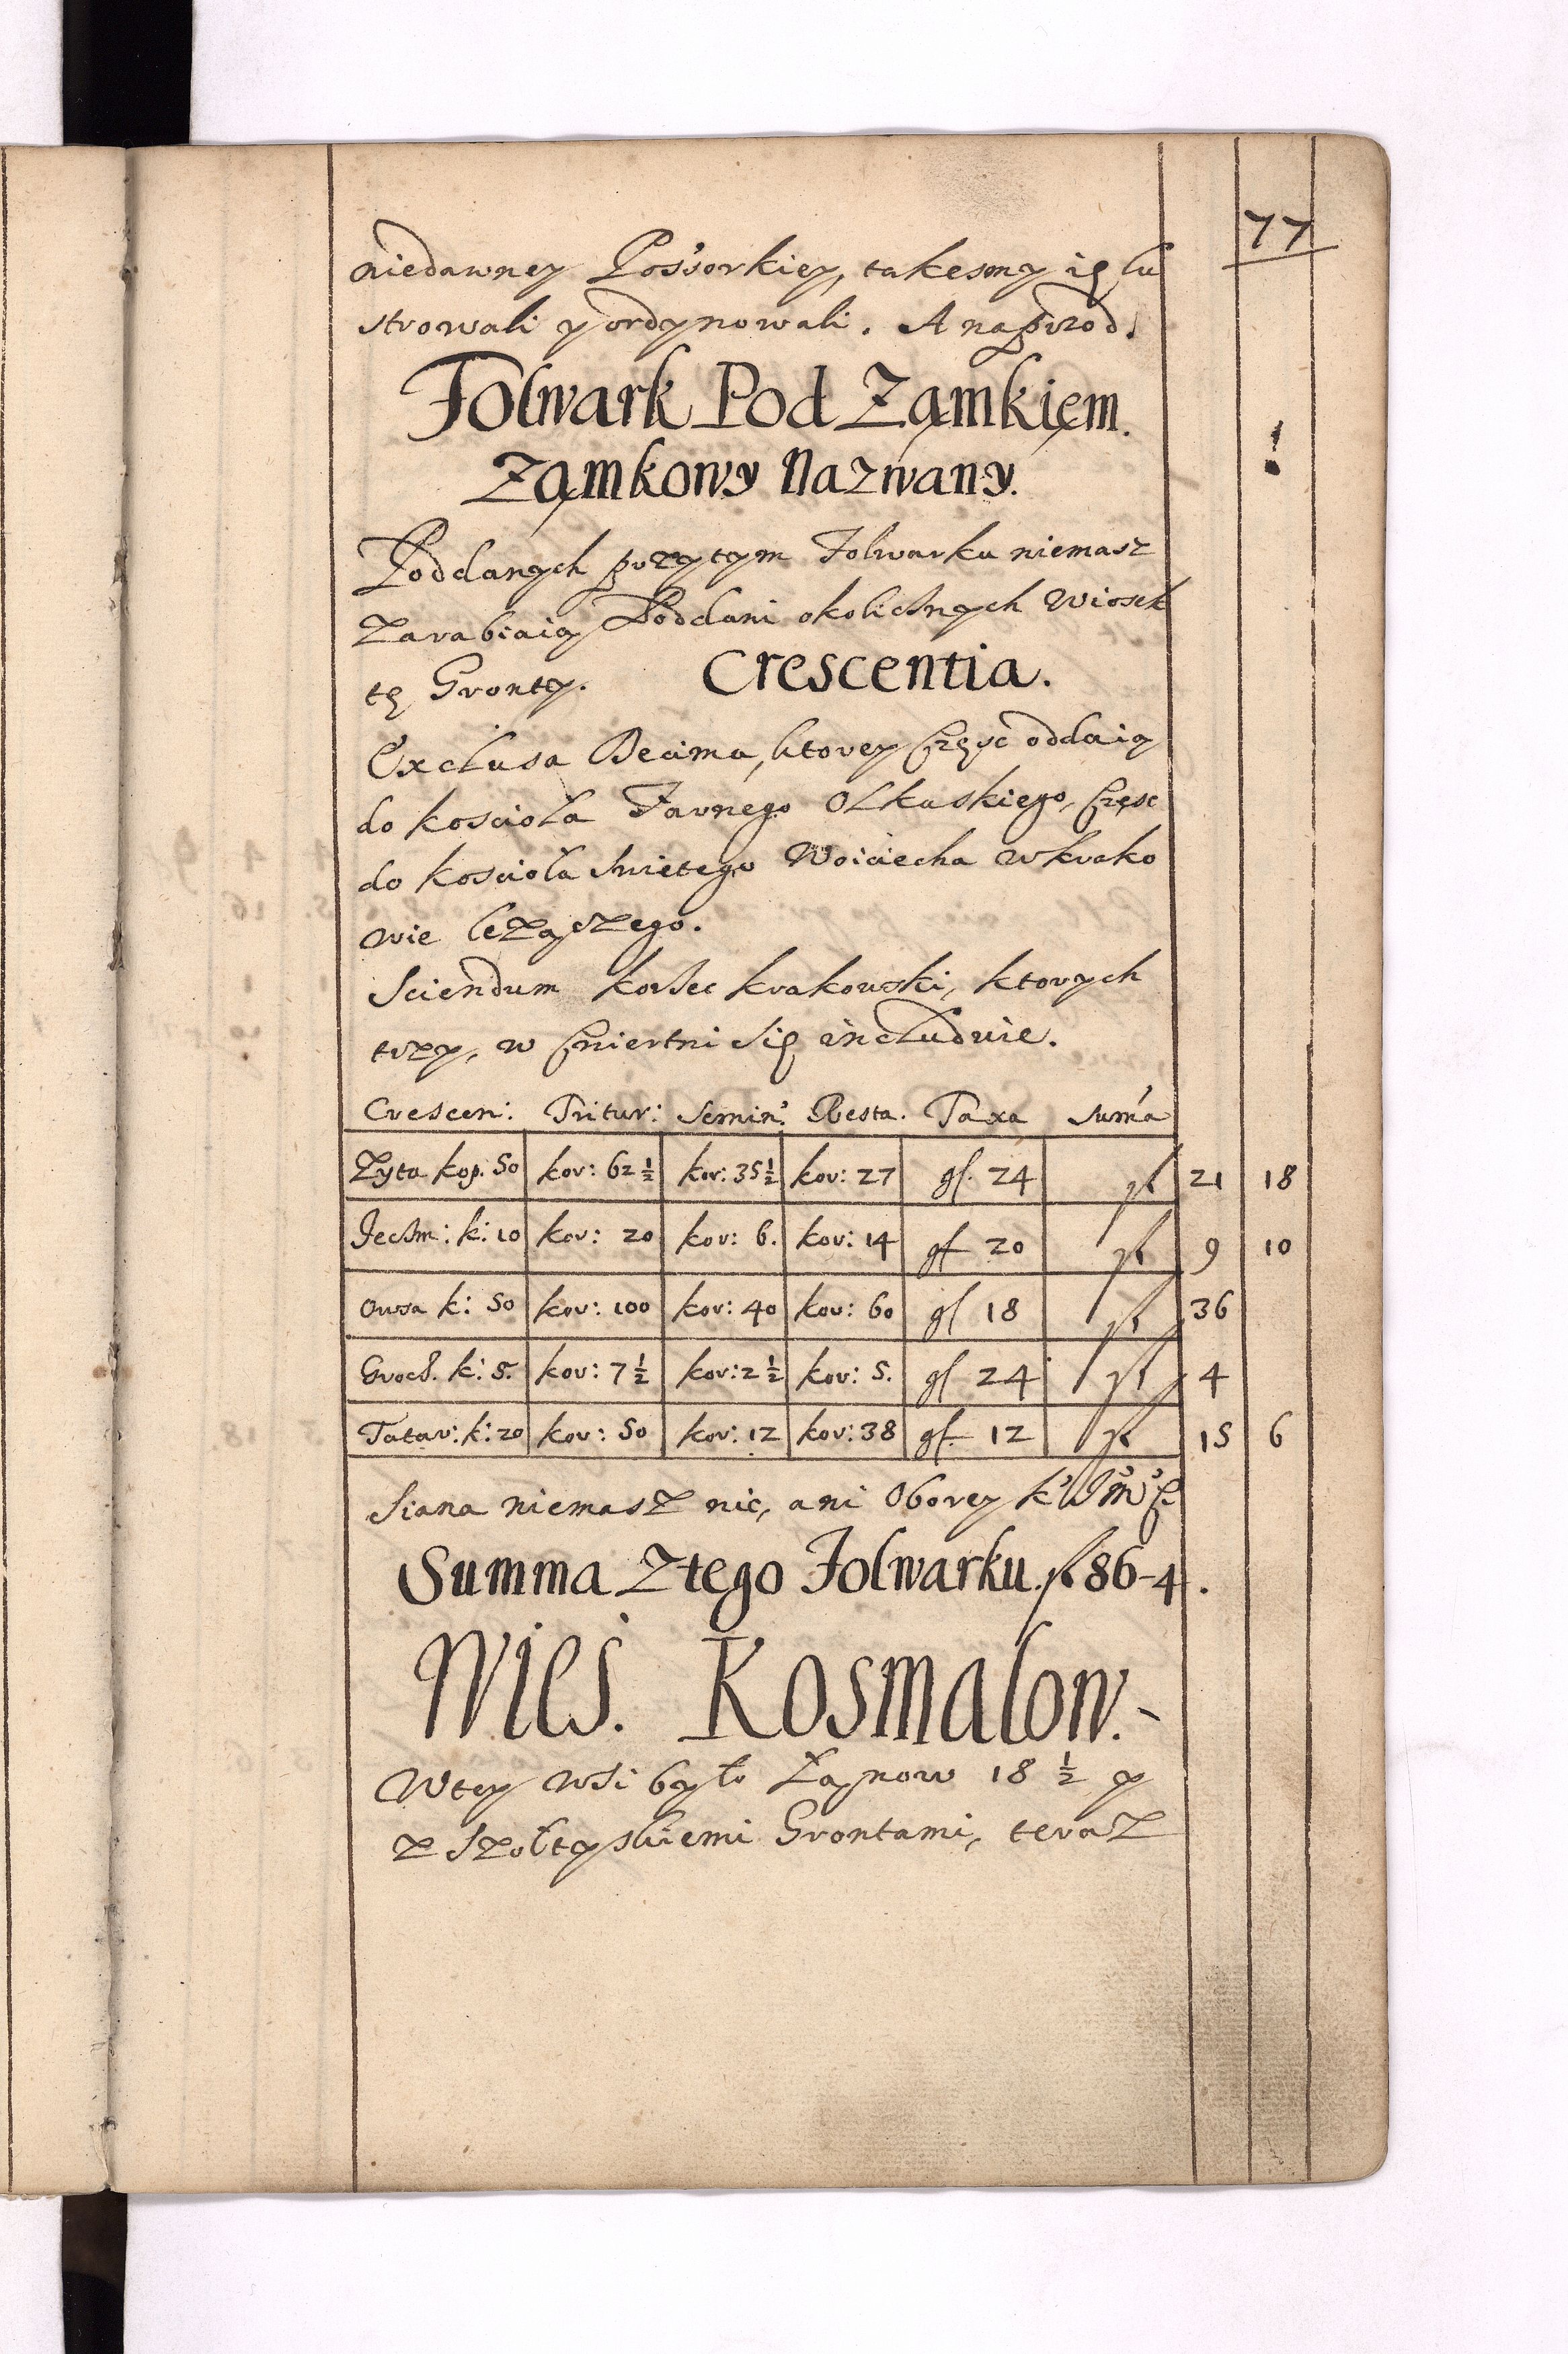 77
niedawney Possorkiey, takesmy ię lu
strowali y ordynowali. A naprzod.
Folwark Pod Zamkięm.
Zamkowy Nazwany.
Poddanych przytym Folwarku niemasz
zarabiaią Poddani okolicznych Wiosek
tę Gronty. Crescentia.
Exclusa Decima, ktorey częsc oddaią
do kosciola Farnego Olkuskiego, częsc
do kosciola Swietego Woiciecha w krako
wie lezączego.
Sciendum korzec krakowski, ktorych
trzy, w cwiertni się includuie.
Crescen: Tritur: Semin: Resta. Taxa Suma
Zyta kop. 50 kor: 62 ½ kor: 35 ½ kor: 27 gl. 24 fl 21 18
Jeczm: k: 10 kor: 20 kor: 6. kor: 14 gl 20 fl 9 10
Owsa k: 50 kor: 100 kor: 40 kor: 60 gl 18 fl 36
Groch. k: 5. kor: 7 ½ kor: 2 ½ kor: 5. gl 24 fl 4
Tatar: k: 20 kor: 50 kor: 12 kor: 38 gl 12 fl 15 6
Siana niemasz nic, ani Oborey
Summa z tego Folwarku. fl 86-4.
Wies. Kosmalow.
Wtey wsi było Łanow 18 ½ y
z Szołtyskiemi Grontami, teraz